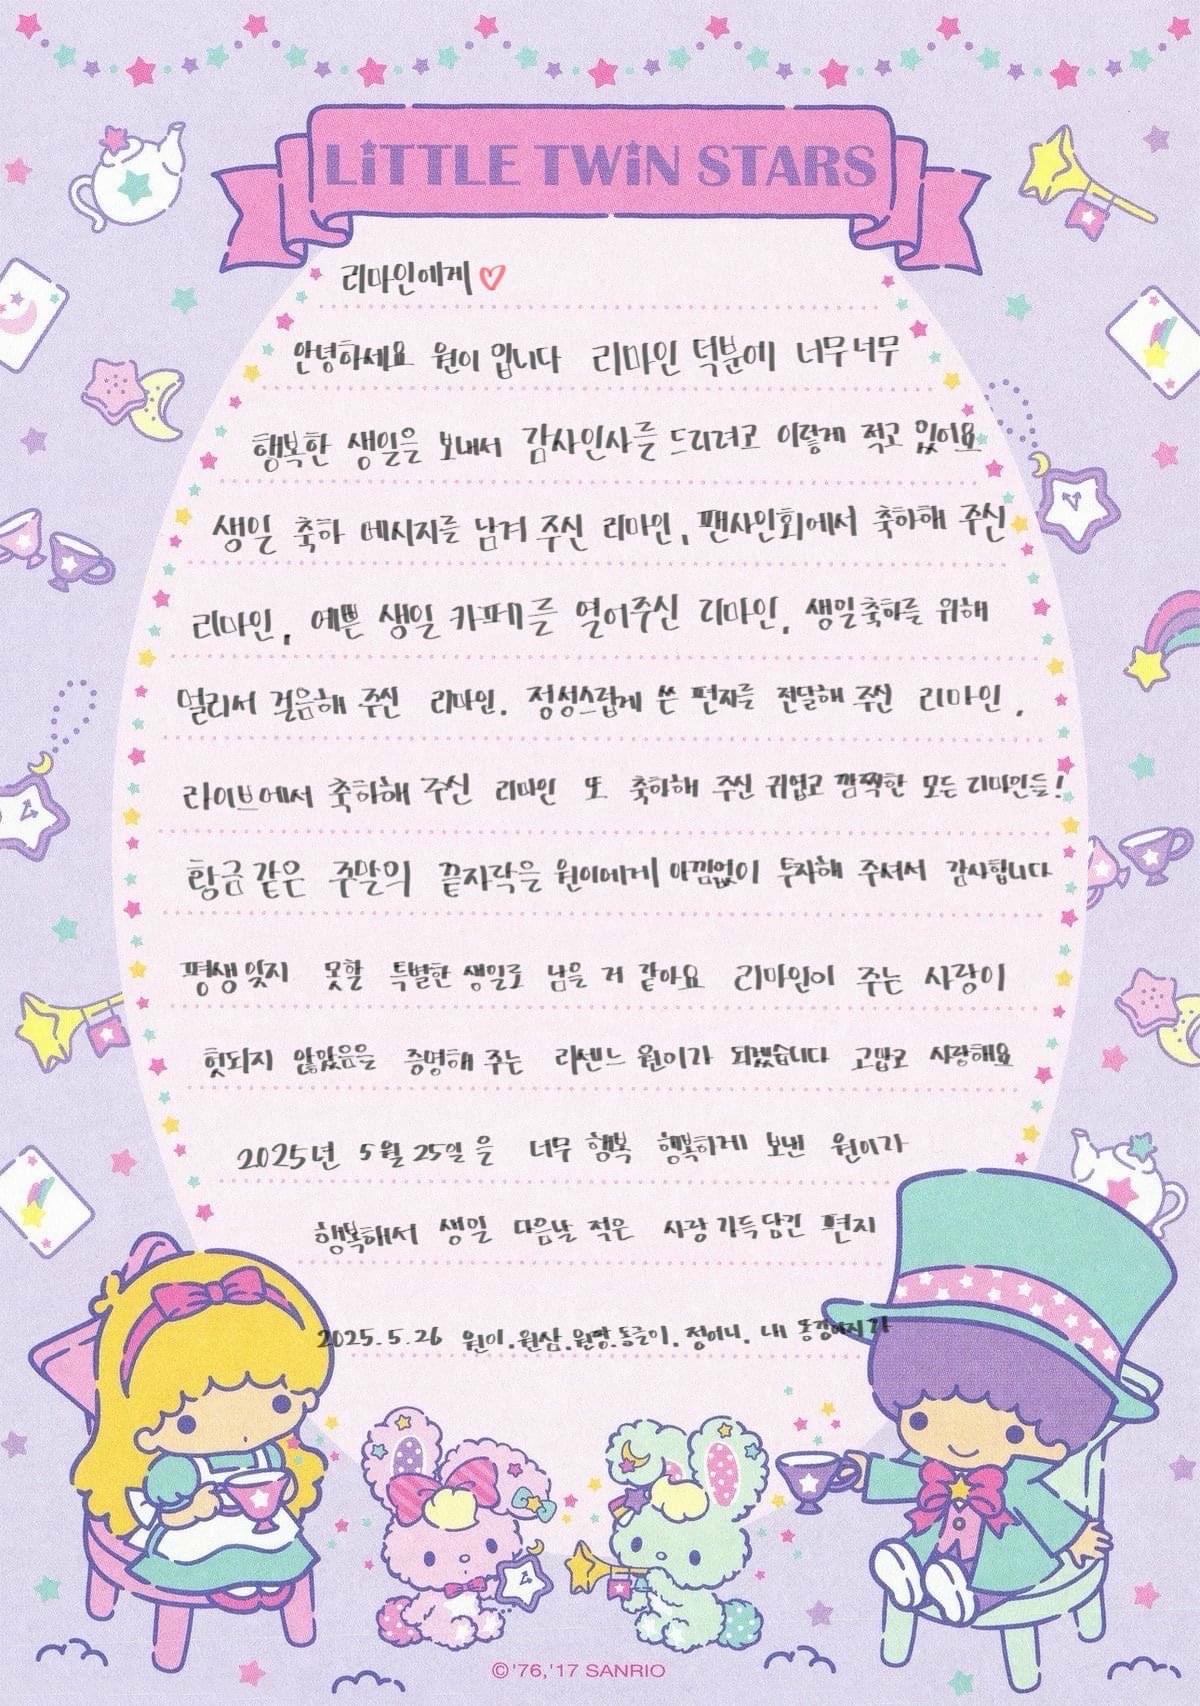 LiTTLE TWiN STARS
리마인에게♡
안녕하세요 원이 입니다 리마인 덕분에 너무너무
행복한 생일을 보내서 감사인사를 드리려고 이렇게 적고 있어요
생일 축하 메시지를 남겨 주신 리마인, 팬사인회에서 축하해 주신
리마인, 예쁜 생일 카페를 열어주신 리마인, 생일축하를 위해
멀리서 걸음해 주신 리마인, 정성스럽게 쓴 편지를 전달해 주신 리마인,
라이브에서 축하해 주신 리마인 또 축하해 주신 귀엽고 깜찍한 모든 리마인들!
황금 같은 주말의 끝자락을 원이에게 아낌없이 투자해 주셔서 감사합니다
평생 잊지 못할 특별한 생일로 남을 거 같아요 리마인이 주는 사랑이
헛되지 않았음을 증명해 주는 리센느 원이가 되겠습니다 고맙고 사랑해요
2025년 5월 25일 을 너무 행복 행복하게 보낸 원이가
행복해서 생일 다음날 적은 사랑 가득 담긴 편지
2025.5.26 원이.원삼.원망.동글이.정이니. 내 똥강아지가
©'76,'17 SANRIO